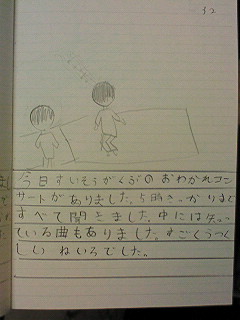 今日すいそうがくぶのおわかれコン
サートがありました。5時きっかりまで
すべて開きました。中には知っ
ている曲もありました。すごくうつく
しいねいろでした。